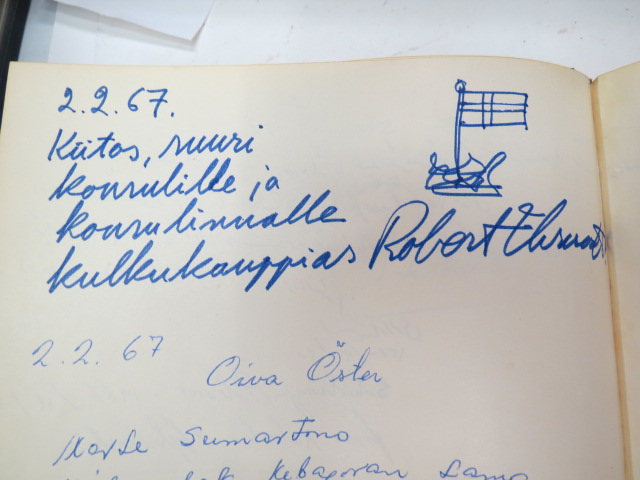 2.2.67.
Kiitos, suuri
konsulille ja
konsulinnalle
kulkukauppias Robert
2.2.67
Oiva Öster
Sumartono
Kebajoran Lama